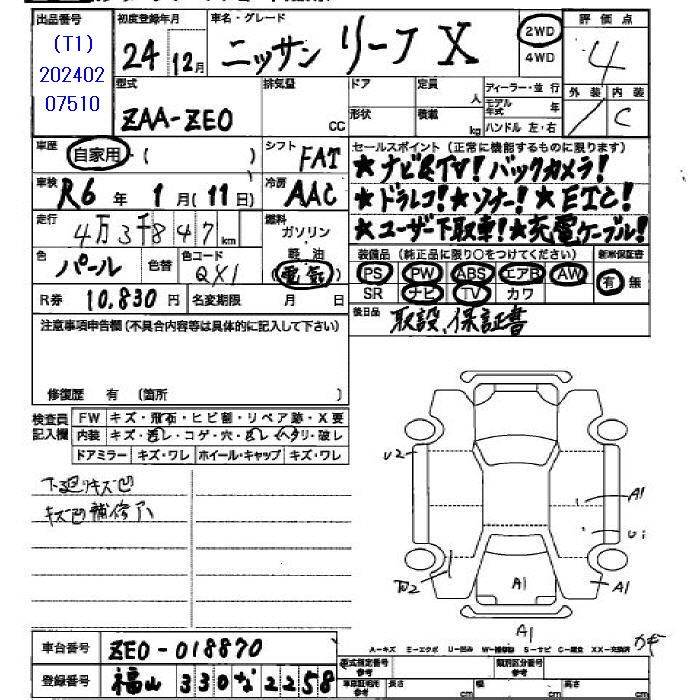 出品番号
(T1)
202402
07510
初度登録年月
24年12月
車名・グレード
ニッサン リーフ X
2WD
4WD
評価点
4
外装 内装
C
型式
ZAA-ZE0
排気量
CC
ドア
形状
定員
人
積載
kg
ディーラー・並行
モデル年式 年
ハンドル 左・右
車歴
自家用・( )
シフト
FAT
車検
R6年1月(11日)
冷房
AAC
走行
4万3千847km
燃料
ガソリン
・軽油
電気
色
パール
色替
色コード
QX1
R券 10,830円
名変期限 月 日
セールスポイント(正常に機能するものに限ります)
★ナビ&TV!バックカメラ!
★ドラレコ!★ソナー!★ETC!
★ユーザー下取車!★充電ケーブル!
装備品(純正品に限り○をつけてください)
新車保証書
PS PW ABS エアB AW
SR ナビ TV カワ
有 無
後日品
取説、保証書
注意事項申告欄(不具合内容等は具体的に記入して下さい)
修復歴 有 (箇所 )
検査員
記入欄
FW キズ・飛石・ヒビ割・リペア跡・X要
内装 キズ・汚レ・コゲ・穴・ヘタリ・破レ
ドアミラー キズ・ワレ ホイール・キャップ キズ・ワレ
下廻りキズ凹
キズ凹補修
U2
A1
A1
A1
A1
車台番号 ZE0-018870
登録番号 福山 330 な 2258
A-キズ E-エクボ U-凹み W-補修跡 S-サビ C-腐食 XX-交換済
型式指定番号
参考
類別区分番号
参考
車庫証明用
参考
長さ cm
幅 cm
高さ cm